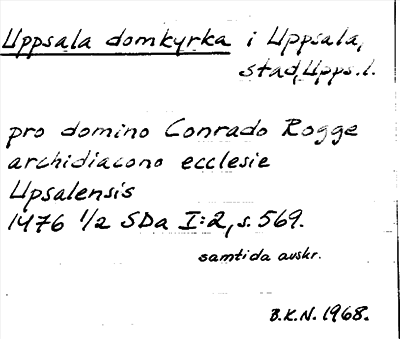 Uppsala domkyrka i Uppsala,
stad, Upps.l.
pro domino Conrado Rogge
archidiacono ecclesie
Upsalensis
1476 1/2 SDa I:2, s. 569.
samtida avskr.
B.K.N. 1968.